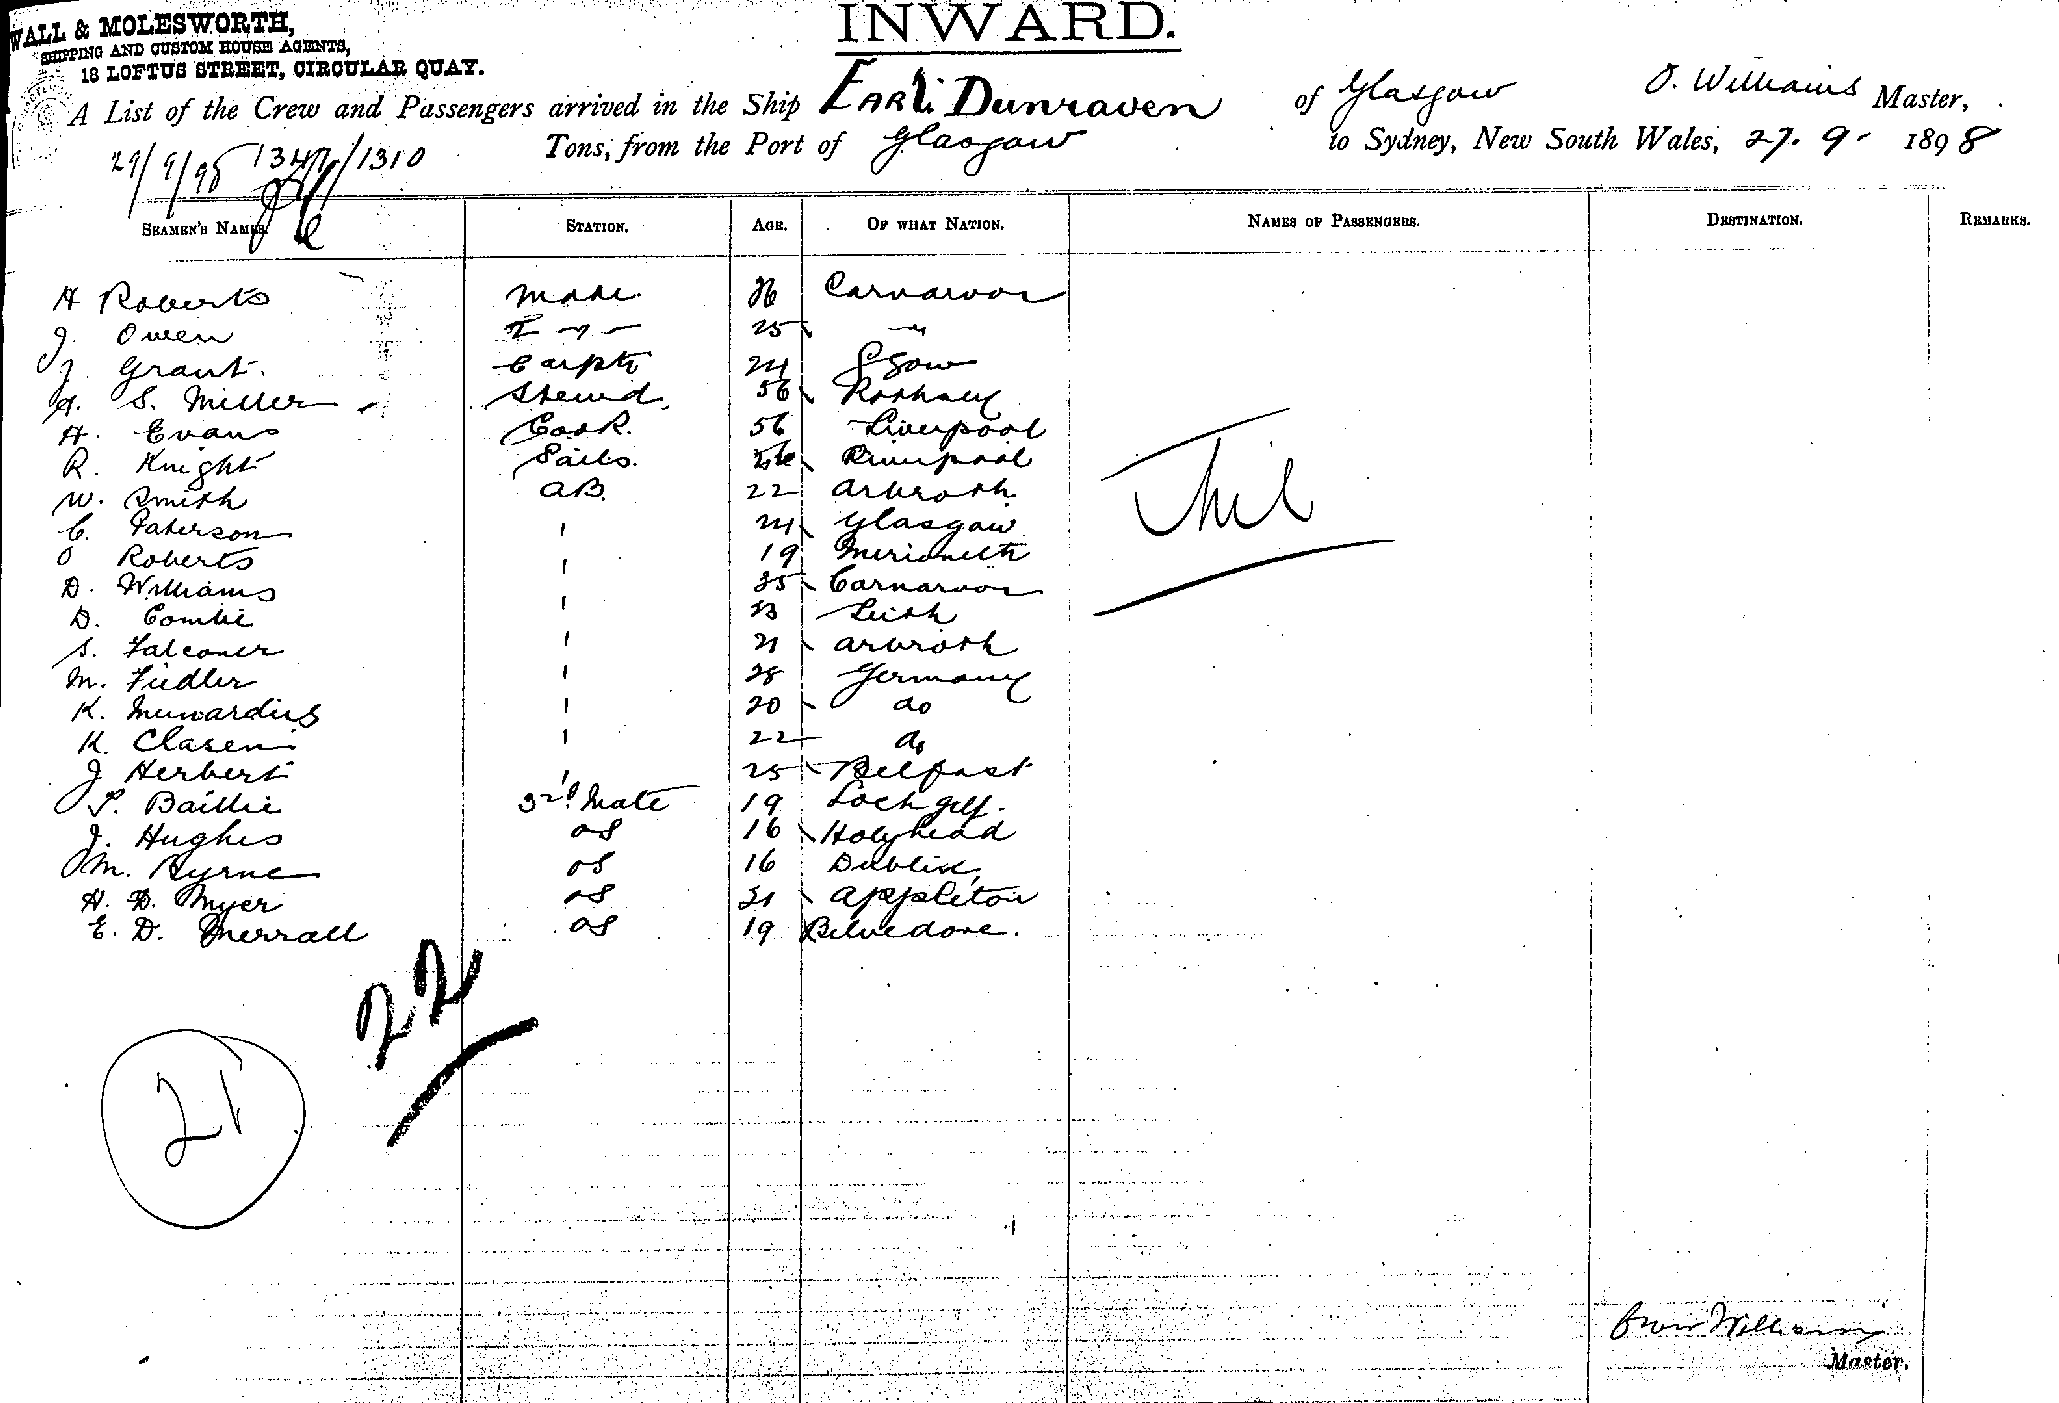 WALL & MOLESWORTH,
SHIPPING AND CUSTOM HOUSE AGENTS,
18 LOFTUS STREET, CIRCULAR QUAY.
INWARD.
A List of the Crew and Passengers arrived in the Ship Earl Dunraven of Glasgow O. Williams Master,
29/9/98 1347/1310 Tons, from the Port of Glasgow to Sydney, New South Wales, 27. 9. 1898
SEAMEN'S NAMES. STATION. AGE. OF WHAT NATION. NAMES OF PASSENGERS. DESTINATION. REMARKS.
H Roberts Mate Carnarvon
J. Owen 25 "
J. Grant. Carptr 24 Ggow
S. Miller Stewd. 56 Rothsay
H. Evans Cook. 56 Liverpool
R. Knight Sails. Liverpool
W. Smith AB. 22 Arbroth
C. Paterson " 24 Glasgow
O Roberts " 19 Merioneth
D. Williams " 35 Carnarvon
D. Combie " 23 Leith
S. Falconer " 21 Arbroth
M. Fiedler " 28 Germany
K. Muwardius " 20 do
K. Clasen " 22 do
J Herbert " 25 Belfast
P. Baillie 3rd Mate 19 Loch gilp.
J. Hughes OS 16 Holyhead
M. Byrne OS 16 Dublin,
H. D. Myer OS 21 Appleton
E. D. Merrall OS 19 Belvedore.
Nil
22
21
Owen Williams
Master.